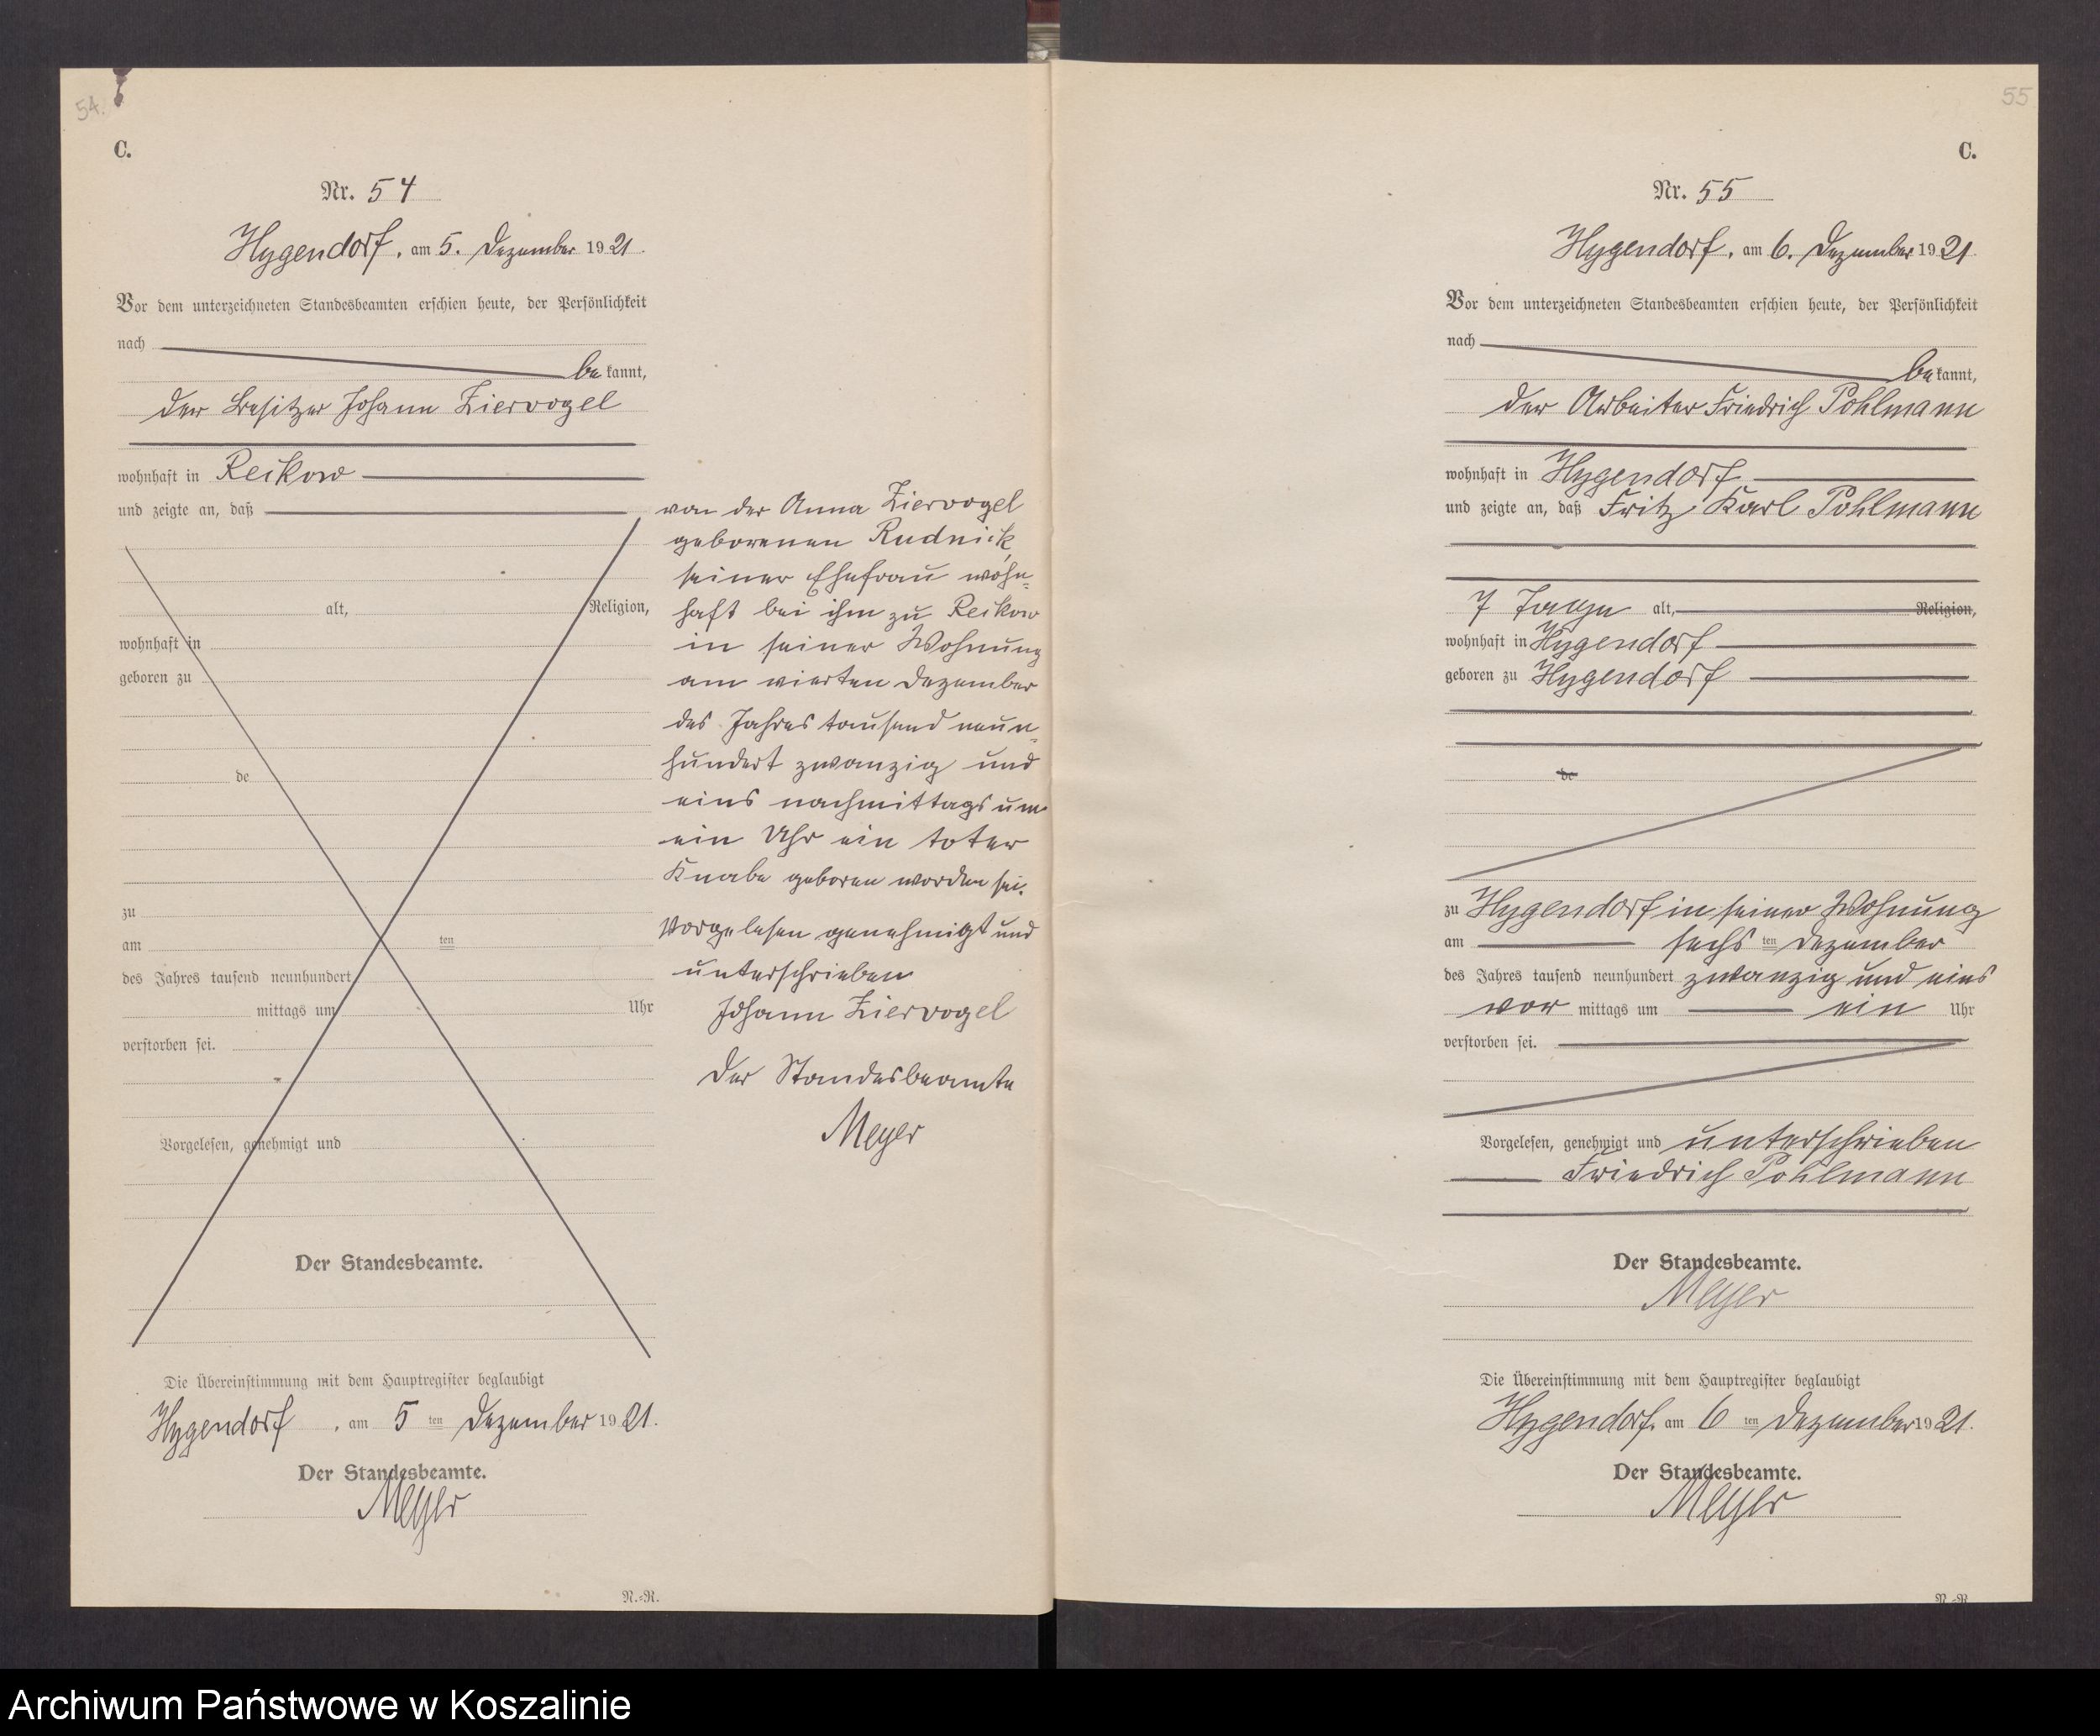 54.
C.
Nr. 54
Hygendorf, am 5. Dezember 1921.
Vor dem unterzeichneten Standesbeamten erschien heute, der Persönlichkeit
nach
bekannt,
der Besitzer Johann Ziervogel
wohnhaft in Reikow
und zeigte an, daß
alt, Religion,
wohnhaft in
geboren zu
de
zu
am ten
des Jahres tausend neunhundert
mittags um Uhr
verstorben sei.
Vorgelesen, genehmigt und
Der Standesbeamte.
von der Anna Ziervogel
geborenen Rudnick,
seiner Ehefrau wohn=
haft bei ihm zu Reikow
in seiner Wohnung
am vierten Dezember
des Jahres tausend neun=
hundert zwanzig und
eins nachmittags um
ein Uhr ein toter
Knabe geboren worden sei.
Vorgelesen genehmigt und
unterschrieben
Johann Ziervogel
Der Standesbeamte
Meyer
Die Übereinstimmung mit dem Hauptregister beglaubigt
Hygendorf, am 5 ten Dezember 1921.
Der Standesbeamte.
Meyer
N.-R.
55
C.
Nr. 55
Hygendorf, am 6. Dezember 1921.
Vor dem unterzeichneten Standesbeamten erschien heute, der Persönlichkeit
nach
bekannt,
der Arbeiter Friedrich Pohlmann
wohnhaft in Hygendorf
und zeigte an, daß Fritz Karl Pohlmann
7 Tage alt, Religion,
wohnhaft in Hygendorf
geboren zu Hygendorf
de
zu Hygendorf in seiner Wohnung
am sechs ten Dezember
des Jahres tausend neunhundert zwanzig und eins
vor mittags um ein Uhr
verstorben sei.
Vorgelesen, genehmigt und unterschrieben
Friedrich Pohlmann
Der Standesbeamte.
Meyer
Die Übereinstimmung mit dem Hauptregister beglaubigt
Hygendorf, am 6 ten Dezember 1921.
Der Standesbeamte.
Meyer
N.-R.
Archiwum Państwowe w Koszalinie